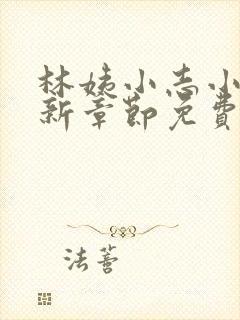 林姨小志小
新章節免費
法薈